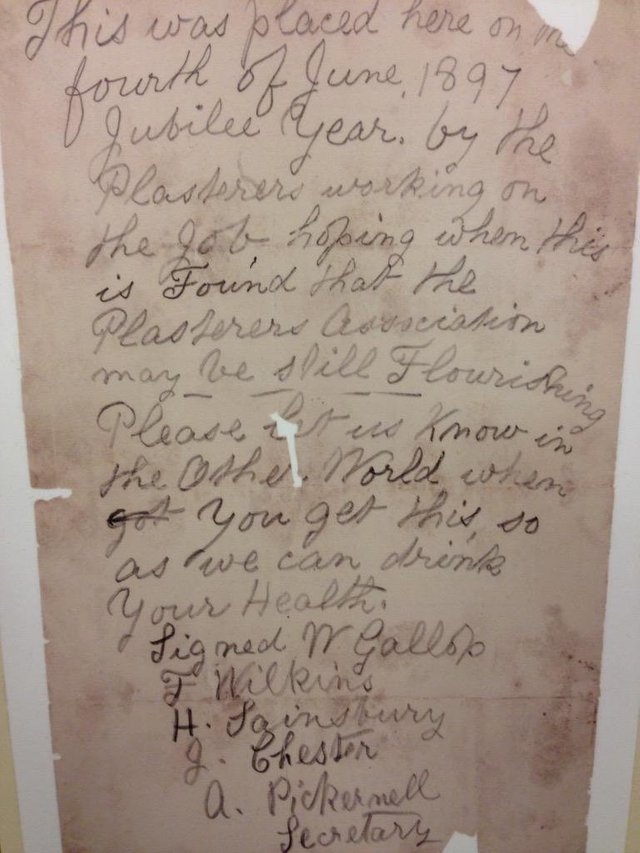 This was placed here on the
fourth of June, 1897
Jubilee Year. by the
Plasterers working on
the Job hoping when this
is Found that the
Plasterers Association
may be still Flourishing
Please let us Know in
the Other World when
got You get this, so
as we can drink
Your Health.
Signed W Gallop
F Wilkins
H. Sainsbury
J. Chester
A. Pickernell
Secretary